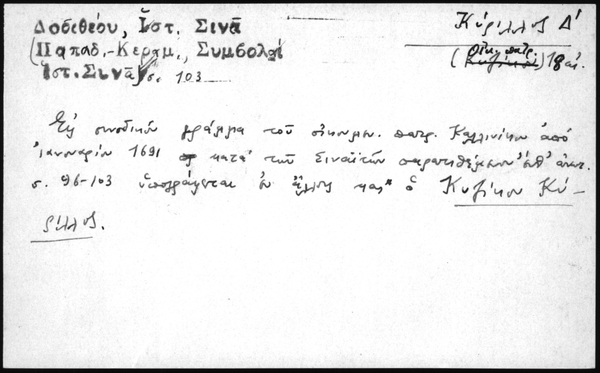 Δοσιθέου, Ἱστ. Σινᾶ
(Παπαδ.-Κεραμ., Συμβολαὶ
Ἱστ. Σινᾶ) σ. 103
Κύριλλος Δ'
(Οἰκ. πατρ.) 18 αἰ.
Εἰς συνοδικὸν γράμμα τοῦ οἰκουμ. πατρ. Καλλινίκου ἀπὸ
Ἰανουαρίου 1691 κατὰ τῶν Σιναϊτῶν παρατιθέμενον ἐνθ' ἀνωτ.
σ. 96-103 ὑπογράφεται ἐν ἄλλοις καὶ ὁ Κυζίκου Κύ-
ριλλος.